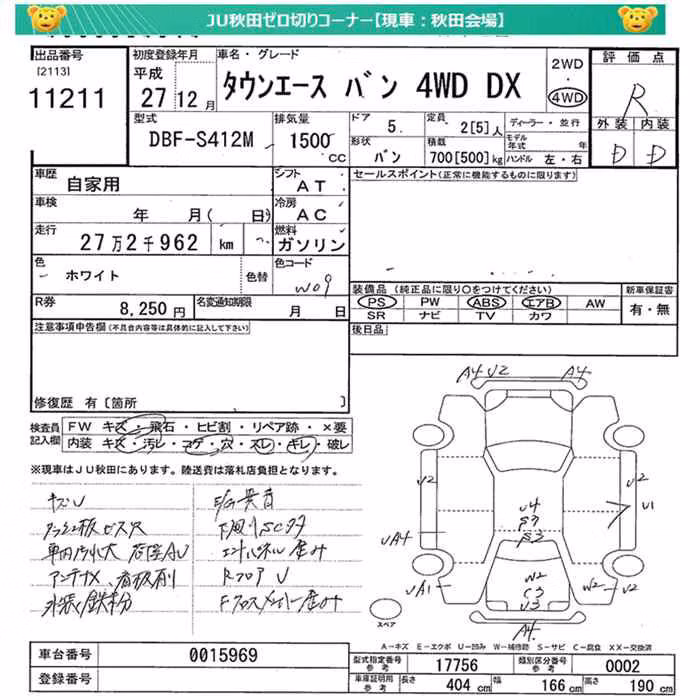 JU秋田ゼロ切りコーナー【現車：秋田会場】
出品番号
[2113]
11211
初度登録年月
平成
27 12月
車名・グレード
タウンエース バン 4WD DX
2WD
・
4WD
評価点
R
外装 内装
D D
型式
DBF-S412M
排気量
1500
CC
ドア
5.
定員
2[5]人
ディーラー・並行
モデル
年式 年
形状
バン
積載
700[500]kg
ハンドル 左・右
車歴
自家用
シフト
AT
セールスポイント(正常に機能するものに限ります)
車検
年 月( 日)
冷房
AC
走行
27万2千962 km
燃料
ガソリン
色
ホワイト
色替
色コード
W09
装備品 (純正品に限り○をつけてください)
新車保証書
PS PW ABS エアB AW
SR ナビ TV カワ
有・無
R券
8,250円
名変通知期限
月 日
後日品
注意事項申告欄(不具合内容等は具体的に記入して下さい)
修復歴 有[箇所
検査員
記入欄
FW キズ・飛石・ヒビ割・リペア跡・×要
内装 キズ・汚レ・コゲ・穴・スレ・キレ・破レ
※現車はJU秋田にあります。陸送費は落札店負担となります。
キズU
車内汚れ大
アンテナX
下廻りSCタ
RフロアU
A4 U2 A4
U2
U2
U1
UA4
U4
S3
S3
UA1
W2
C3
U3
W2
U2
A4
スペア
A－キズ E－エクボ U－凹み W－補修跡 S－サビ C－腐食 XX－交換済
車台番号
0015969
登録番号
型式指定番号
参考
17756
類別区分番号
参考
0002
車庫証明用
参考
長さ
404
cm
幅
166
cm
高さ
190
cm